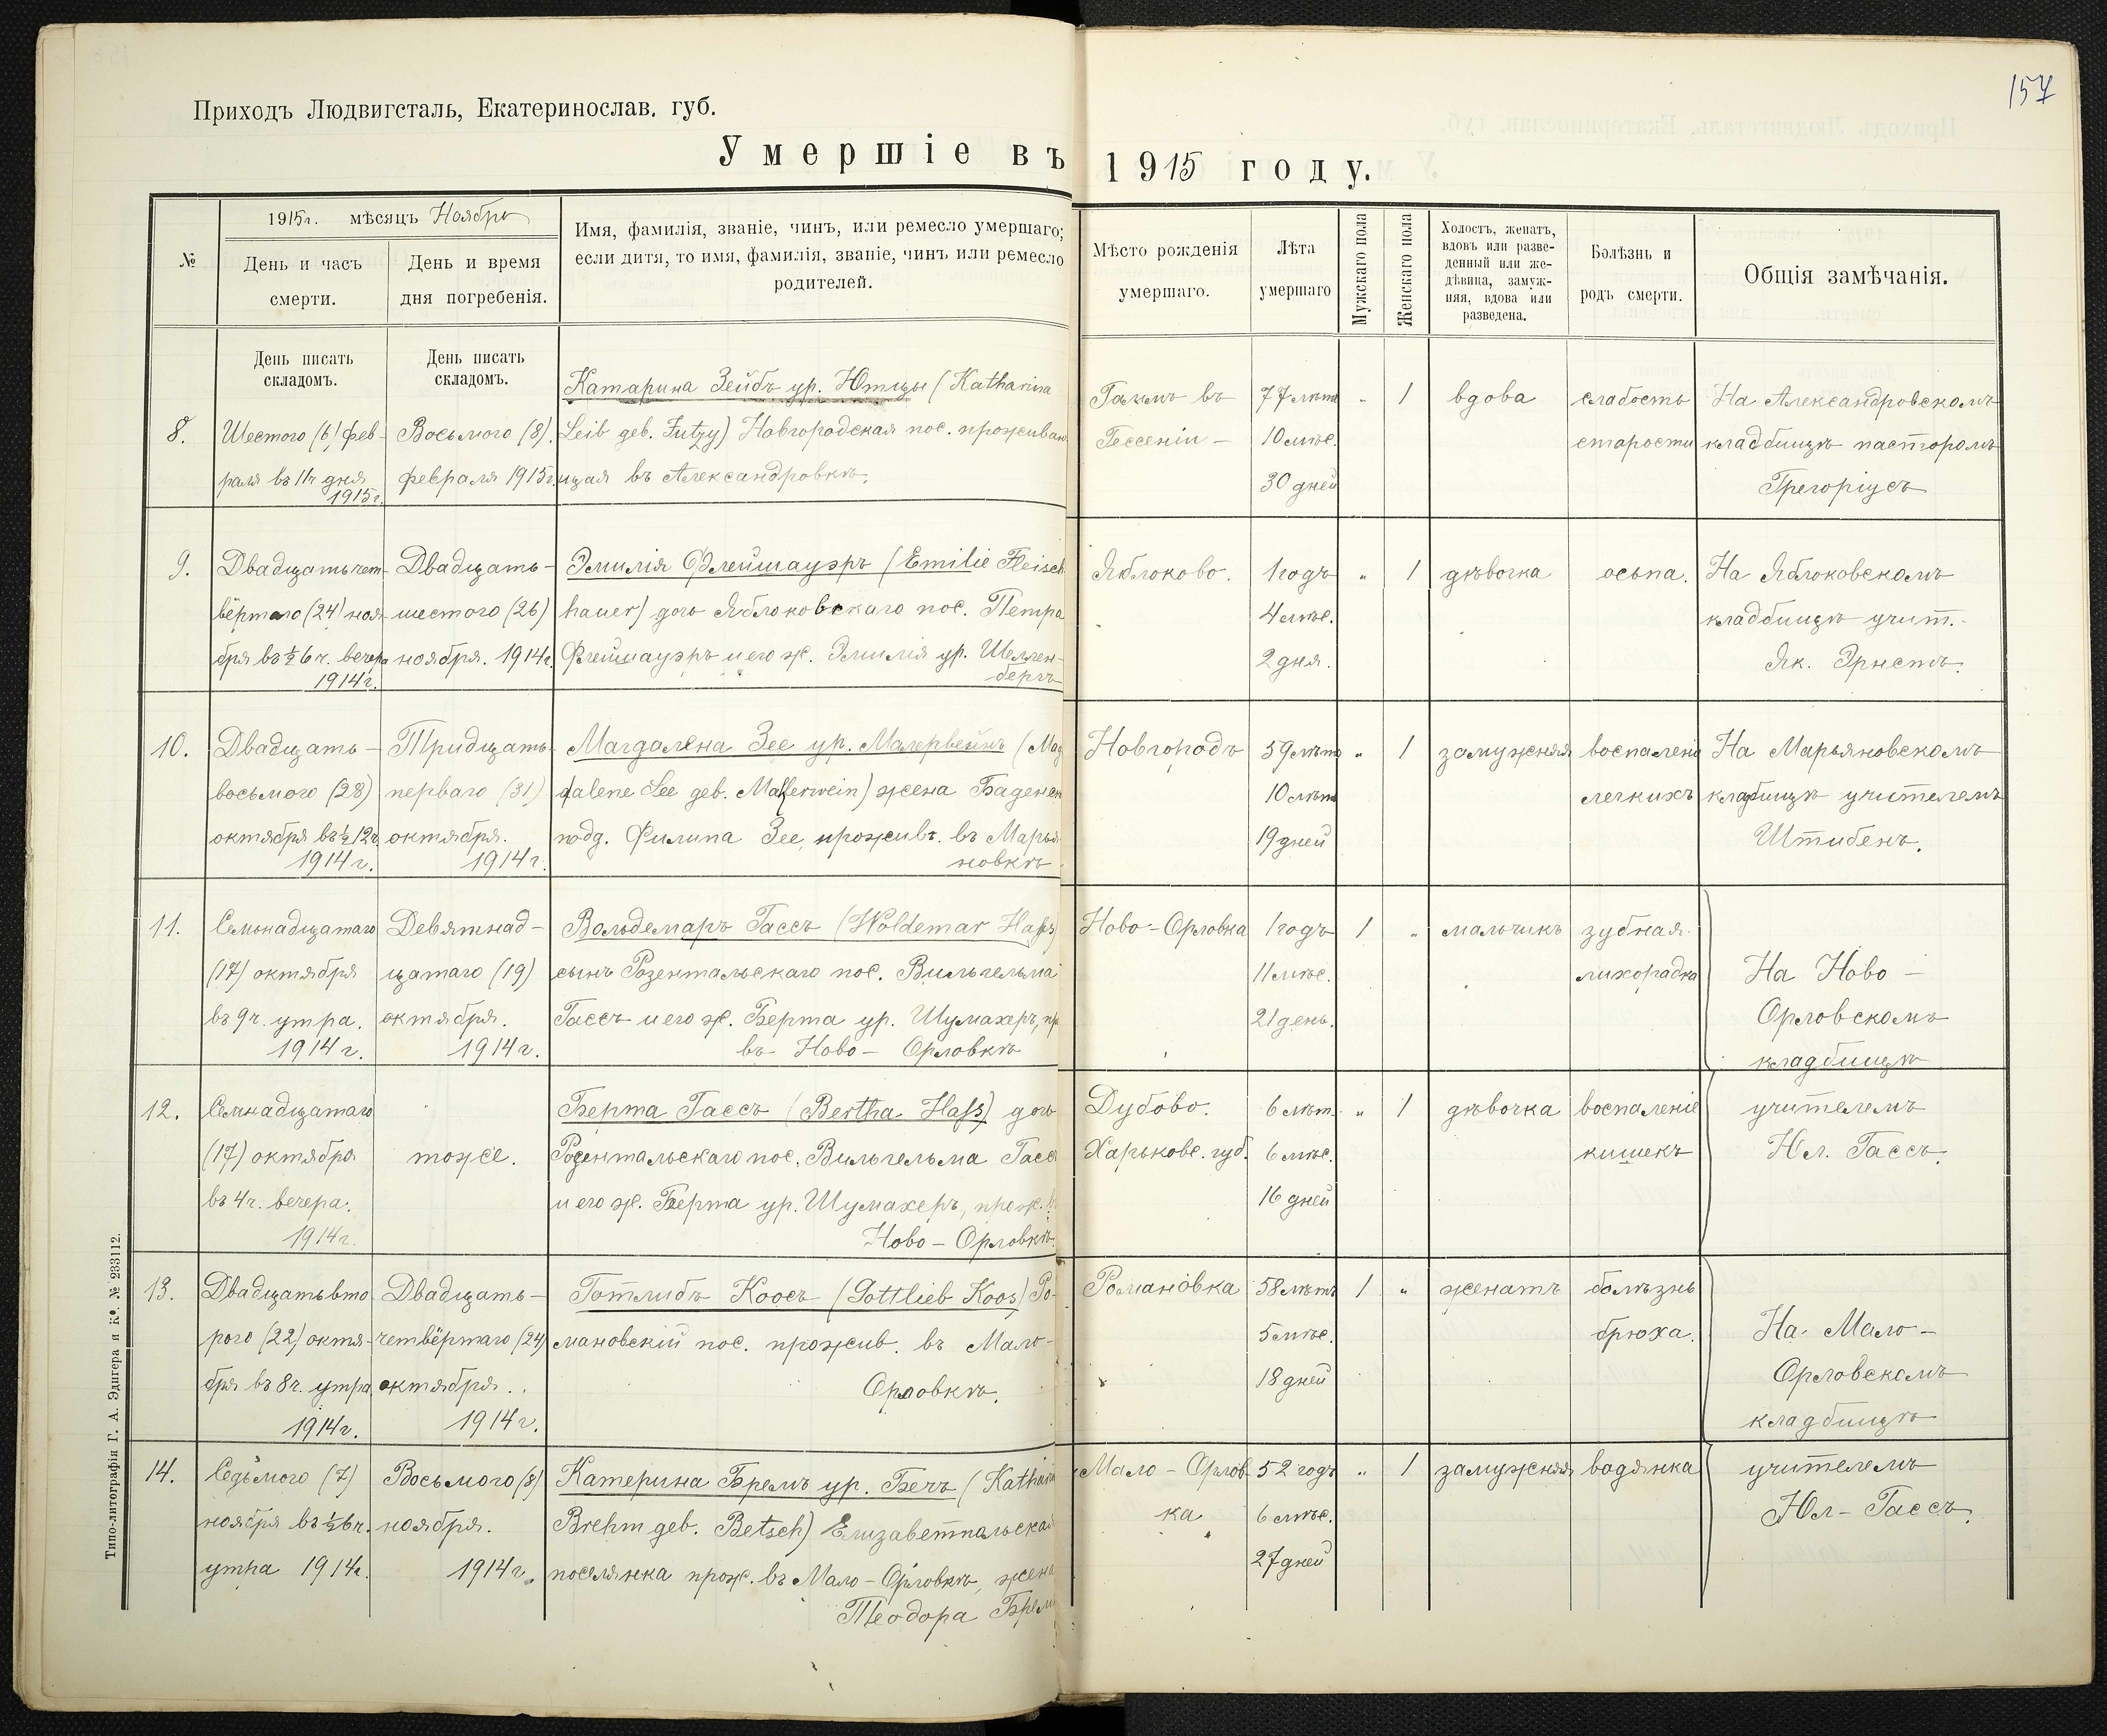 157
Приходъ Людвигсталь, Екатеринослав. губ.
Умершіе въ 1915 году.
№
1915г. мѣсяцъ Ноябрь
День и часъ
смерти.
День и время
дня погребенія.
Имя, фамилія, званіе, чинъ, или ремесло умершаго;
если дитя, то имя, фамилія, званіе, чинъ или ремесло
родителей.
Мѣсто рожденія
умершаго.
Лѣта
умершаго
Мужскаго пола
Женскаго пола
Холостъ, женатъ,
вдовъ или разве-
денный или же-
дѣвица, замуж-
няя, вдова или
разведена.
Болѣзнь и
родъ смерти.
Общія замѣчанія.
День писать
складомъ.
День писать
складомъ.
8.
Шестого (6) фев-
раля въ 11ч дня
1915г.
Восьмого (8).
февраля 1915г.
Катарина Зейбъ ур. Ютцы (Katharina
Leib geb. Jutzy) Новгородская пос. проживаю
щая въ Александровкѣ.
Гакмъ въ
Гессеніи —
77 лѣтъ
10 мѣс.
30 дней
„
1
вдова
слабость
старости
На Александровскомъ
кладбищѣ пасторомъ
Грегоріусъ
9.
Двадцать чет-
вёртаго (24) ноя-
бря въ ½6ч. вечера
1914г.
Двадцать-
шестого (26)
ноября. 1914г.
Эмилія Флейшауэръ (Emilie Fleisch
hauer) дочь Яблоковскаго пос. Петра
Флейшауэръ и его ж. Эмилія ур. Шеллен-
бергъ
Яблоково.
1 годъ
4 мѣс.
2 дня.
„
1
дѣвочка
оспа.
На Яблоковскомъ
кладбищѣ учит.
Як. Эрнстъ.
10.
Двадцать-
восьмого (28)
октября въ ½12ч.
1914 г.
Тридцать-
перваго (31)
октября.
1914 г.
Магдалена Зее ур. Малервейнъ (Mag
dalene See geb. Mallerwein) жена Баденск
подд. Филипа Зее, прожив. въ Марья-
новкѣ
Новгородъ
59 лѣтъ
10 мѣс
19 дней
„
1
замужняя
воспалені
легкихъ
На Марьяновскомъ
кладбищѣ учителемъ
Штибенъ.
11.
Семьнадцатаго
(17) октября
въ 9ч. утра.
1914 г.
Девятнад-
цатаго (19)
октября.
1914 г.
Вольдемаръ Гассъ (Woldemar Haß)
сынъ Розентальскаго пос. Вильгельма
Гассъ и его ж. Берта ур. Шумахеръ, пр
въ Ново- Орловкѣ
Ново-Орловка
1 годъ
11 мѣс.
21 день.
1
„
мальчикъ
зубная
лихорадка
На Ново -
Орловскомъ
кладбищѣ
12.
Семнадцатаго
(17) октября
въ 4ч. вечера.
1914г.
тоже.
Берта Гассъ (Bertha Haß) дочь
Розентальскаго пос. Вильгельма Гасс
и его ж. Берта ур. Шумахеръ, прож.
Ново - Орловкѣ.
Дубово.
Харьковс. губ.
6 лѣт.
6 мѣс.
16 дней
„
1
дѣвочка
воспаленіе
кишекъ
учителемъ
Юл. Гассъ.
13.
Двадцатьвто
рого (22) октя-
бря въ 8ч. утра
1914г.
Двадцать-
четвёртаго (24)
октября.
1914г.
Готлибъ Коосъ (Gottlieb Koos) Ро-
мановскій пос. прожив. въ Мало-
Орловкѣ.
Романовка
58 лѣтъ
5 мѣс.
18 дней
1
„
женатъ
болѣзнь
брюха.
На Мало-
Орловскомъ
кладбищѣ
14.
Седьмого (7)
ноября въ ½6ч.
утра 1914г.
Восьмого (8)
ноября.
1914г.
Катерина Бремъ ур. Бечъ (Kathari
Brehm geb. Betsch) Елизаветпальская
поселянка прож. въ Мало-Орловкѣ, жена
Теодора Брем
Мало - Орлов-
ка
52 годъ
6 мѣс.
27 дней
„
1
замужняя
водянка
учителемъ
Юл- Гассъ.
Типо-литографія Г. А. Эдигера и К°. № 233112.